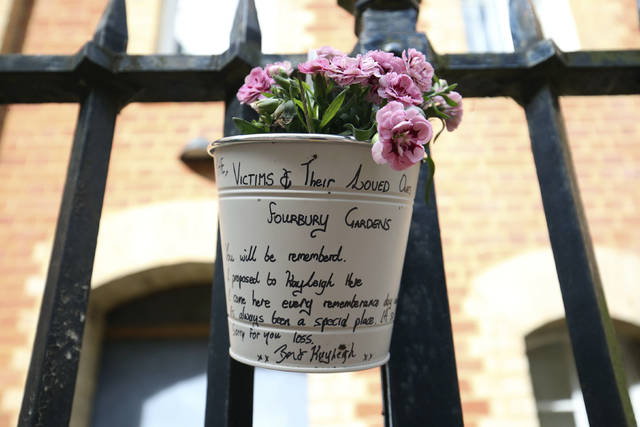 VICTIMS & THEIR LOVED
FOURBURY GARDENS
You will be rememberd.
I proposed to Hayleigh Here
come here every rememberance day
always been a special place.
Sorry for you loss.
xx Ben & Hayleigh xx